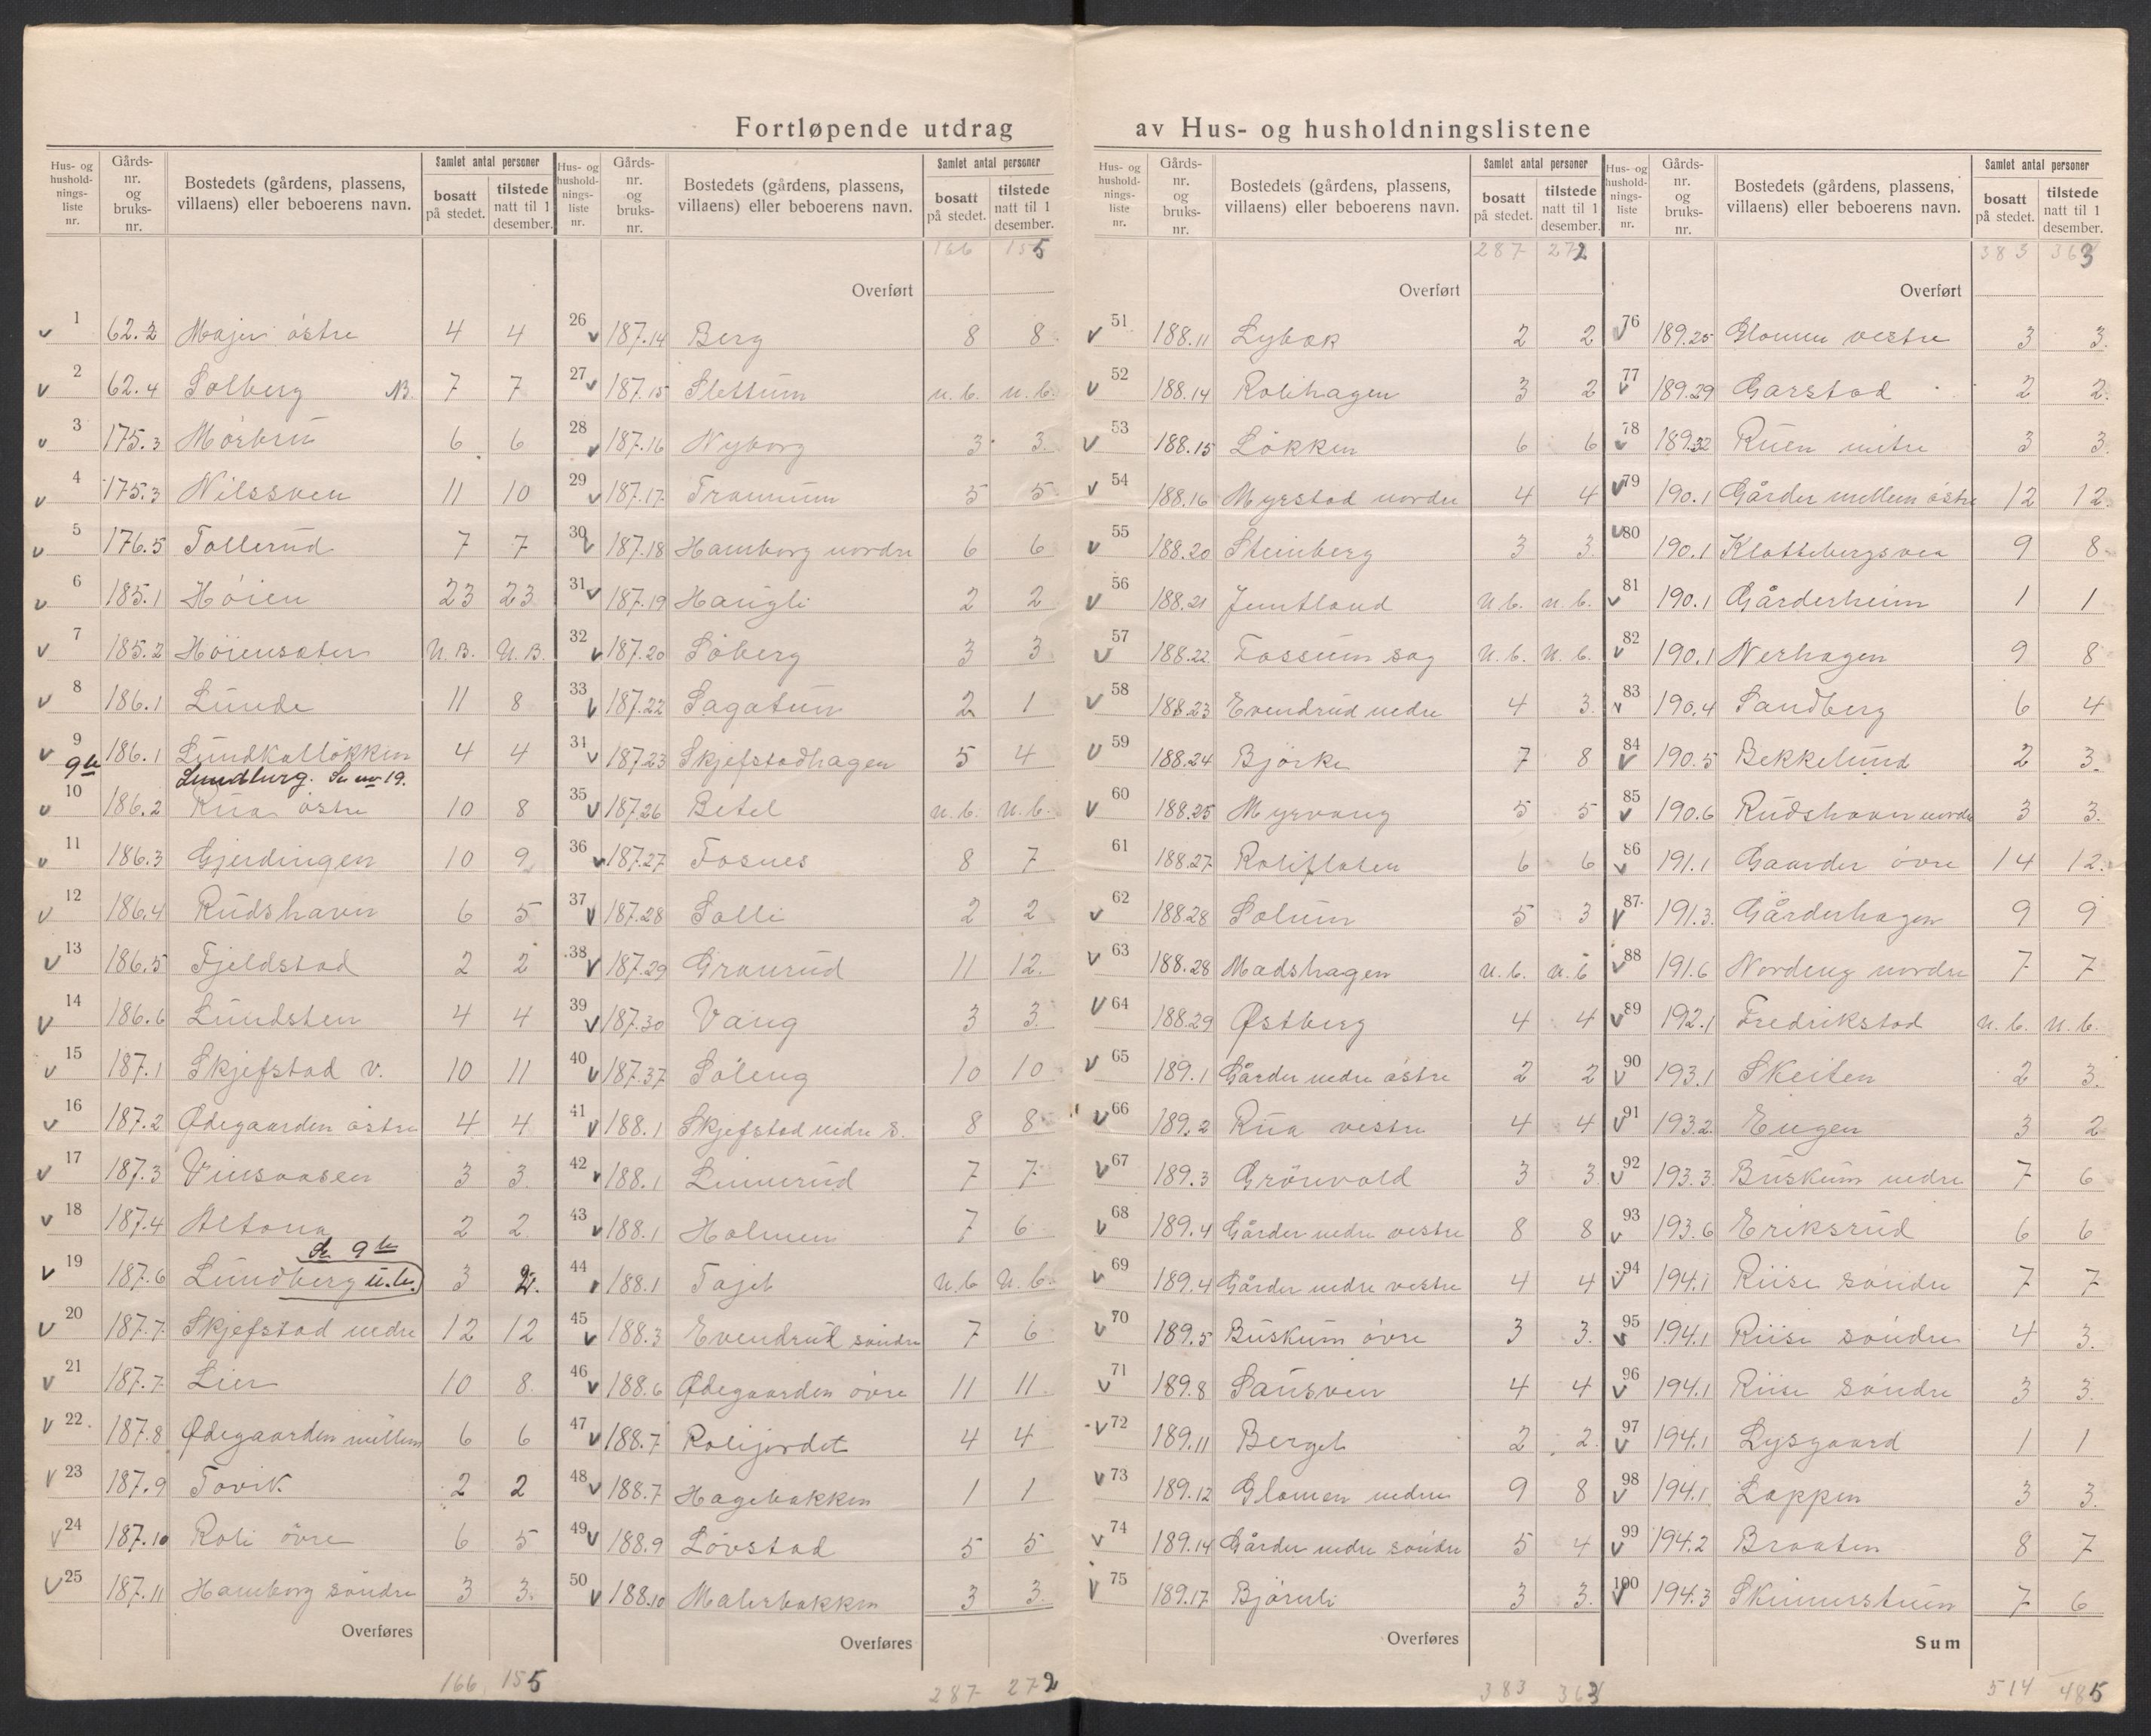 Fortløpende utdrag av Hus- og husholdningslistene
Hus- og husholdnings-liste nr. | Gårds-nr. og bruks-nr. | Bostedets (gårdens, plassens, villaens) eller beboerens navn. | Samlet antal personer bosatt på stedet. | tilstede natt til 1 desember.
1 62.2 Majer östre 4 4
2 62.4 Solberg NB. 7 7
3 175.3 Mörbru 6 6
4 175.3 Nilssveen 11 10
5 176.5 Tollerud 7 7
6 185.1 Höien 23 23
7 185.2 Höiensæter U.B. U.B.
8 186.1 Lunde 11 8
9 186.1 Lundkallökken 4 4
9b Lundburg. Se nr 19.
10 186.2 Rua östre 10 8
11 186.3 Gjerdingen 10 9
12 186.4 Rudshavn 6 5
13 186.5 Fjeldstad 2 2
14 186.6 Lundsten 4 4
15 187.1 Skjefstad v. 10 11
16 187.2 Ødegaarden östre 4 4
17 187.3 Vinsaasen 3 3
18 187.4 Altona 2 2
se 9b
19 187.6 Lundberg u.b. 3 2.
20 187.7 Skjefstad nedre 12 12
21 187.7 Lier 10 8
22 187.8 Ødegaarden mellem 6 6
23 187.9 Tovik 2 2
24 187.10 Roli övre 6 5
25 187.11 Hamborg söndre 3 3
Overføres
166 155
Hus- og husholdnings-liste nr. | Gårds-nr. og bruks-nr. | Bostedets (gårdens, plassens, villaens) eller beboerens navn. | Samlet antal personer bosatt på stedet. | tilstede natt til 1 desember.
166 155
Overført
26 187.14 Berg 8 8
27 187.15 Slettum u.b. u.b.
28 187.16 Nyborg 3 3
29 187.17 Tranmum 5 5
30 187.18 Hamborg nordre 6 6
31 187.19 Haugli 2 2
32 187.20 Söberg 3 3
33 187.22 Sagatun 2 1
31 187.23 Skjefstadhagen 5 4
35 187.26 Betel u.b. u.b.
36 187.27 Fosnes 8 7
37 187.28 Solli 2 2
38 187.29 Granrud 11 12
39 187.30 Vang 3 3
40 187.37 Söleng 10 10
41 188.1 Skjefstad nedre s. 8 8
42 188.1 Linnerud 7 7
43 188.1 Holmen 7 6
44 188.1 Tajet u.b u.b.
45 188.3 Evendrud söndre 7 6
46 188.6 Ødegaarden övre 11 11
47 188.7 Rolijordet 4 4
48 188.7 Hagebakken 1 1
49 188.9 Lövstad 5 5
50 188.10 Malerbakken 3 3
Overføres
287 272
Hus- og husholdnings-liste nr. | Gårds-nr. og bruks-nr. | Bostedets (gårdens, plassens, villaens) eller beboerens navn. | Samlet antal personer bosatt på stedet. | tilstede natt til 1 desember.
287 272
Overført
51 188.11 Lybæk 2 2
52 188.14 Rolihagen 3 2
53 188.15 Lökken 6 6
54 188.16 Myrstad nordre 4 4
55 188.20 Steinberg 3 3
56 188.21 Jemtland u.b. u.b.
57 188.22 Fossum sag u.b. u.b.
58 188.23 Evendrud nedre 4 3
59 188.24 Björke 7 8
60 188.25 Myrvang 5 5
61 188.27 Roliflaten 6 6
62 188.28 Solum 5 3
63 188.28 Madshagen u.b. u.b
64 188.29 Østberg 4 4
65 189.1 Gårder nedre östre 2 2
66 189.2 Rua vestre 4 4
67 189.3 Grönvold 3 3
68 189.4 Gårder nedre vestre 8 8
69 189.4 Gårder nedre vestre 4 4
70 189.5 Buskum övre 3 3
71 189.8 Sausveen 4 4
72 189.11 Berget 2 2
73 189.12 Glomen nedre 9 8
74 189.14 Gårder nedre söndre 5 4
75 189.17 Björnli 3 3
Overføres
383 363
Hus- og husholdnings-liste nr. | Gårds-nr. og bruks-nr. | Bostedets (gårdens, plassens, villaens) eller beboerens navn. | Samlet antal personer bosatt på stedet. | tilstede natt til 1 desember.
383 363
Overført
76 189.25 Glomen vestre 3 3
77 189.29 Garstad 2 2
78 189.32 Ruen nitre 3 3
79 190.1 Gårder mellem östre 12 12
80 190.1 Klottebergsvea 9 8
81 190.1 Gårderheim 1 1
82 190.1 Nerhagen 9 8
83 190.4 Sandberg 6 4
84 190.5 Bekkelund 2 3
85 190.6 Rudshavn nordre 3 3
86 191.1 Gaarder övre 14 12
87 191.3 Gårderhagen 9 9
88 191.6 Nordeng nordre 7 7
89 192.1 Fredrikstad u.b. u.b.
90 193.1 Skeiten 2 3
91 193.2 Engen 3 2
92 193.3 Buskum nedre 7 6
93 193.6 Eriksrud 6 6
94 194.1 Riise söndre 7 7
95 194.1 Riise söndre 4 3
96 194.1 Riise söndre 3 3
97 194.1 Lysgaard 1 1
98 194.1 Lappen 3 3
99 194.2 Braaten 8 7
100 194.3 Skinnerstuen 7 6
Sum
514 485